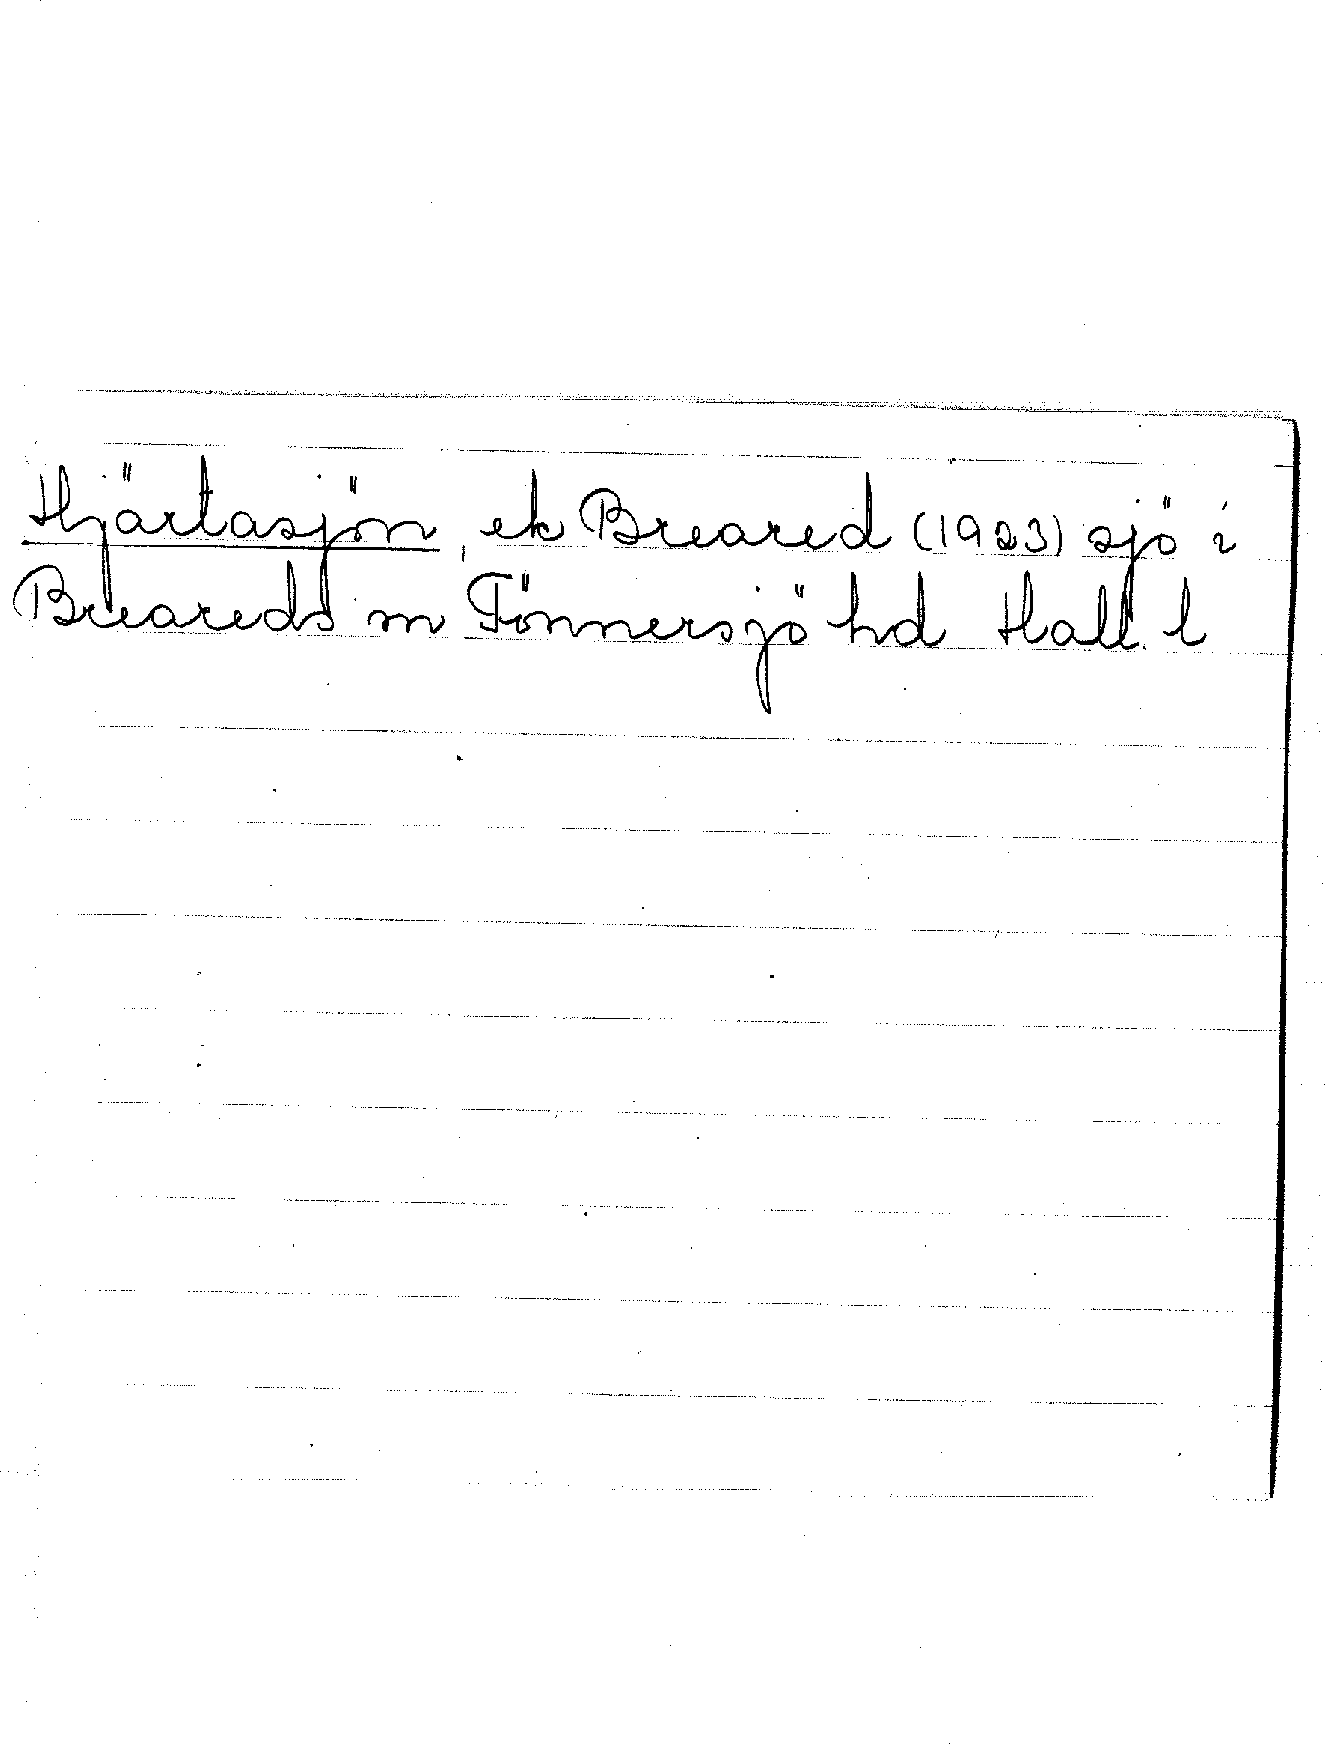 Hjärtasjön, ek Breared (1923) sjö i
Breareds m Tönnersjö hd Hall. l